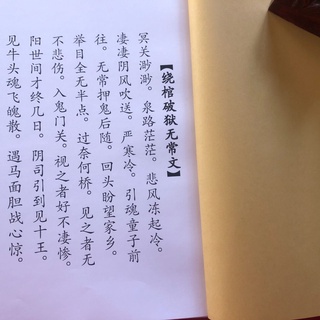 【绕棺破狱无常文】
冥关渺渺。泉路茫茫。悲风冻起冷。
凄凄阴风吹送。严寒冷。引魂童子前
往。无常押鬼后随。回头盼望家乡。
举目全无半点。过奈何桥。见之者无
不悲伤。入鬼门关。视之者好不凄惨。
阳世间才终几日。阴司引到见十王。
见牛头魂飞魄散。遇马面胆战心惊。